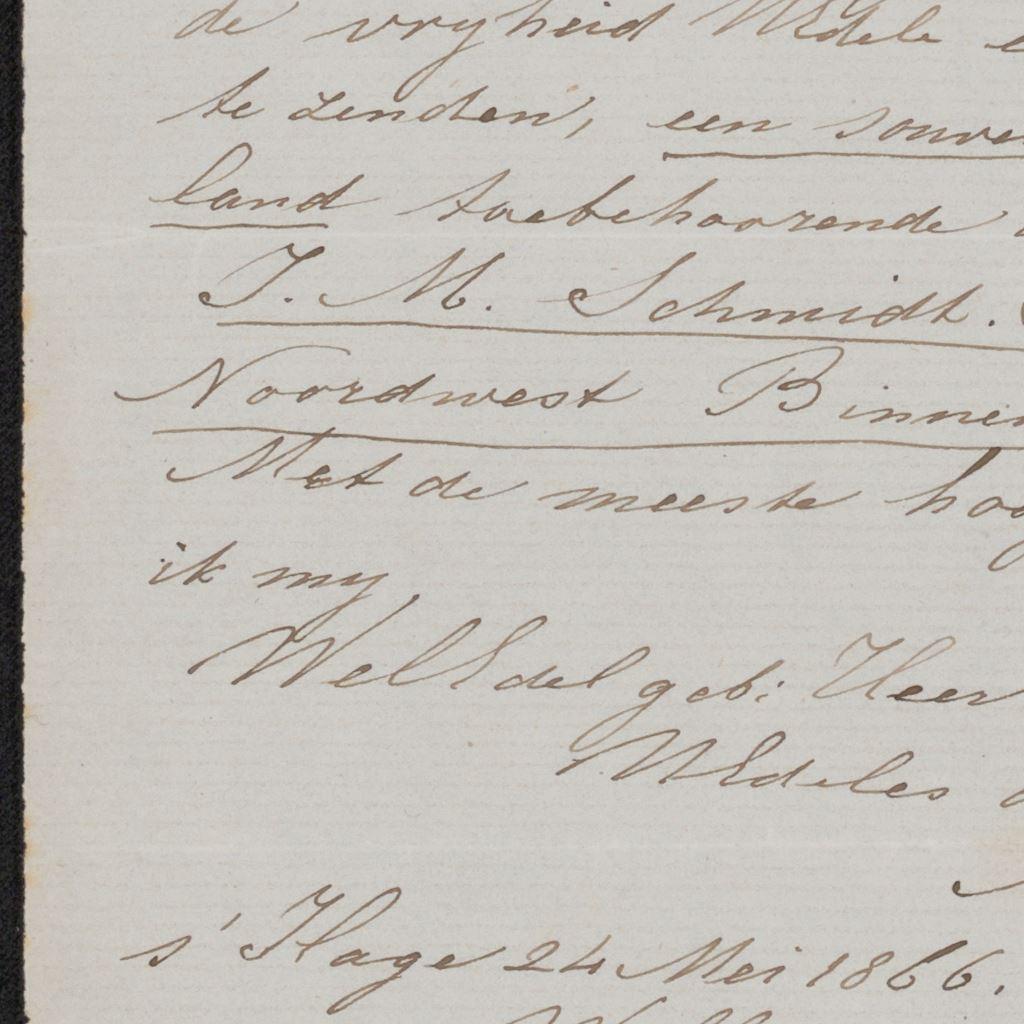 de vryheid WEdele
te zenden, een souve
land toebehoorende
J. M. Schmidt.
Noordwest Binnen
Met de meeste hoog
ik my
WelEdel geb: Heer
WEdeles
s' Hage 24 Mei 1866.